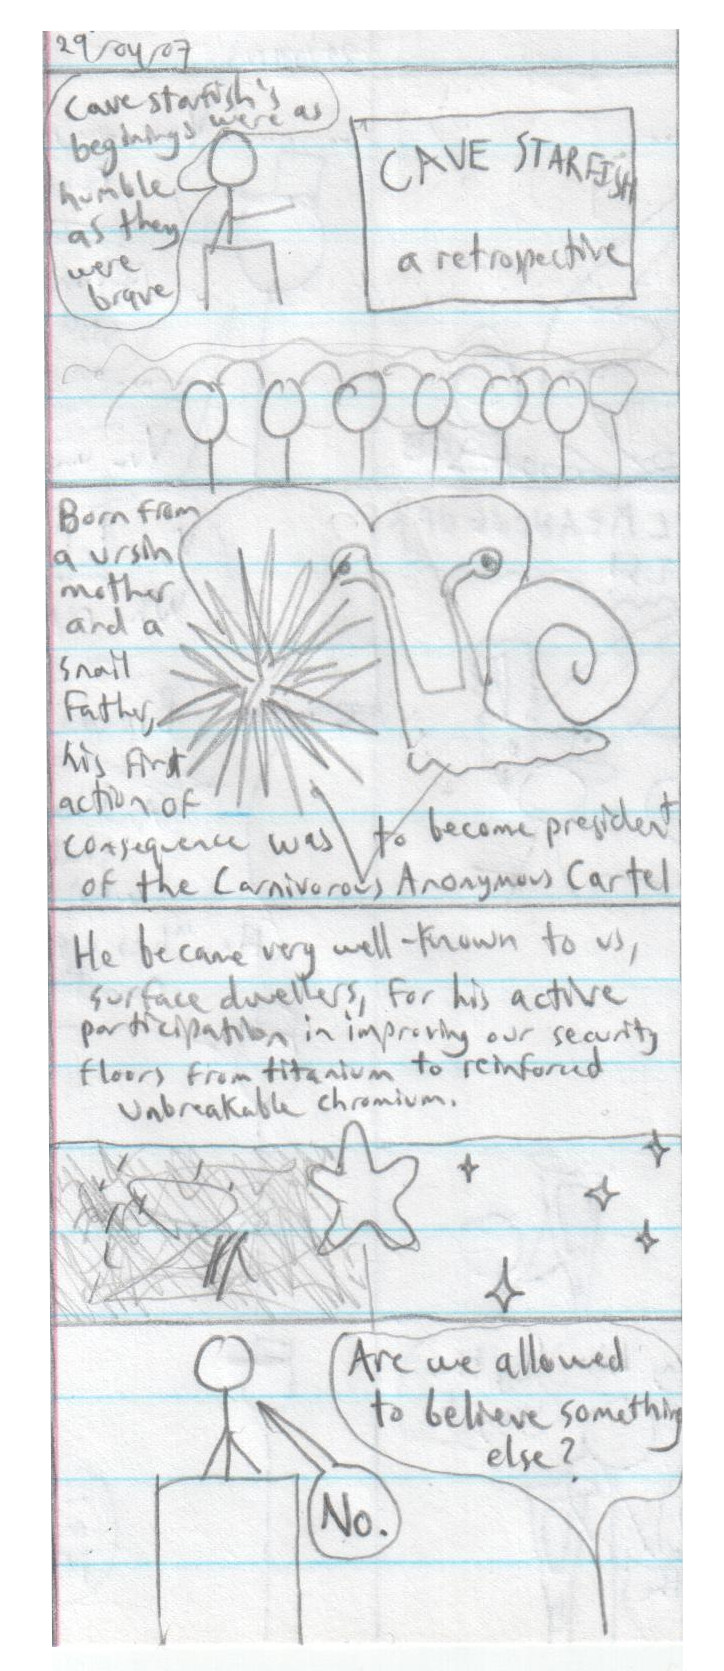 29/04/07
Cave starfish's
beginings were as
humble
as they
were
brave
CAVE STARFISH
a retrospective
Born from
a ursin
mother
and a
snail
father,
his first
action of
consequence was to become president
of the Carnivorous Anonymous Cartel
He became very well-known to us,
surface dwellers, for his active
participation in improving our security
floors from titanium to reinforced
unbreakable chromium.
Are we allowed
to believe something
else?
No.